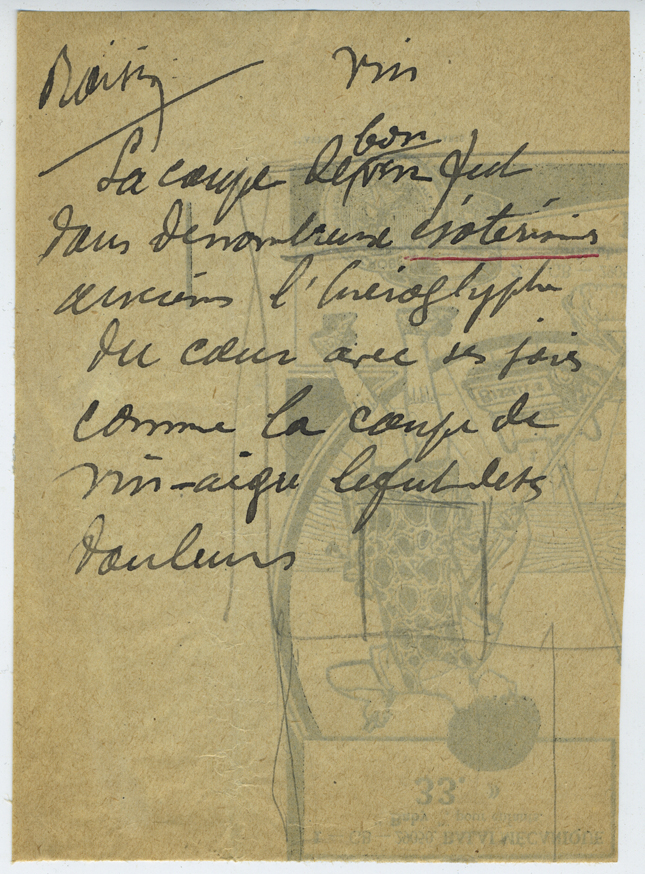 Raisin vin
La coupe de bon vin fut
dans de nombreux ésotérismes
anciens l'hiéroglyphe
du cœur avec ses joies
comme la coupe de
vin-aigre le fut de ses
douleurs
33